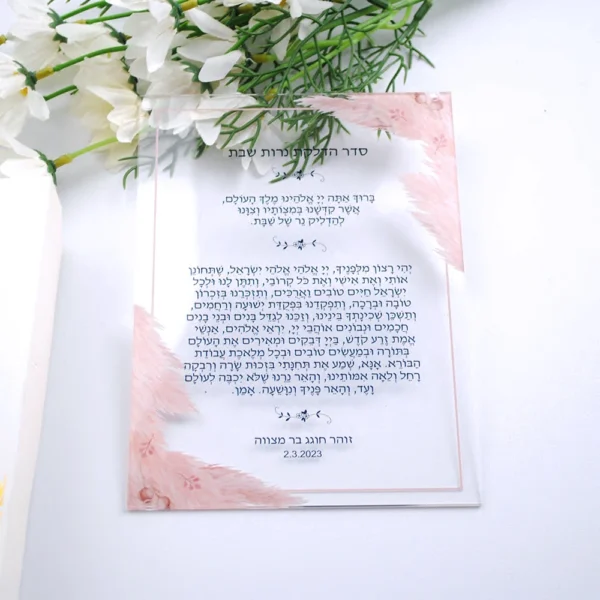 סדר הדלקת נרות שבת
בָּרוּךְ אַתָּה יְיָ אֱלֹהֵינוּ מֶלֶךְ הָעוֹלָם,
אֲשֶׁר קִדְּשָׁנוּ בְּמִצְוֹתָיו וְצִוָּנוּ
לְהַדְלִיק נֵר שֶׁל שַׁבָּת.
יְהִי רָצוֹן מִלְּפָנֶיךָ, יְיָ אֱלֹהַי אֱלֹהֵי יִשְׂרָאֵל, שֶׁתְּחוֹנֵן
אוֹתִי וְאֶת אִישִׁי וְאֶת כֹּל קְרוֹבַי, וְתִתֵּן לָנוּ וּלְכָל
יִשְׂרָאֵל חַיִּים טוֹבִים וַאֲרֻכִּים, וְתִזְכְּרֵנוּ בְּזִכְרוֹן
טוֹבָה וּבְרָכָה, וְתִפְקְדֵנוּ בִּפְקֻדַּת יְשׁוּעָה וְרַחֲמִים,
וְתַשְׁכֵּן שְׁכִינָתְךָ בֵּינֵינוּ, וְזַכֵּנוּ לְגַדֵּל בָּנִים וּבְנֵי בָנִים
חֲכָמִים וּנְבוֹנִים אוֹהֲבֵי יְיָ, יִרְאֵי אֱלֹהִים, אַנְשֵׁי
אֱמֶת זֶרַע קֹדֶשׁ, בַּייָ דְּבֵקִים וּמְאִירִים אֶת הָעוֹלָם
בְּתוֹרָה וּבְמַעֲשִׂים טוֹבִים וּבְכָל מְלֶאכֶת עֲבוֹדַת
הַבּוֹרֵא. אָנָּא, שְׁמַע אֶת תְּחִנָּתִי בִּזְכוּת שָׂרָה וְרִבְקָה
רָחֵל וְלֵאָה אִמּוֹתֵינוּ, וְהָאֵר נֵרֵנוּ שֶׁלֹּא יִכְבֶּה לְעוֹלָם
וָעֶד, וְהָאֵר פָּנֶיךָ וְנִוָּשֵׁעָה. אָמֵן.
זוהר חוגג בר מצווה
2.3.2023